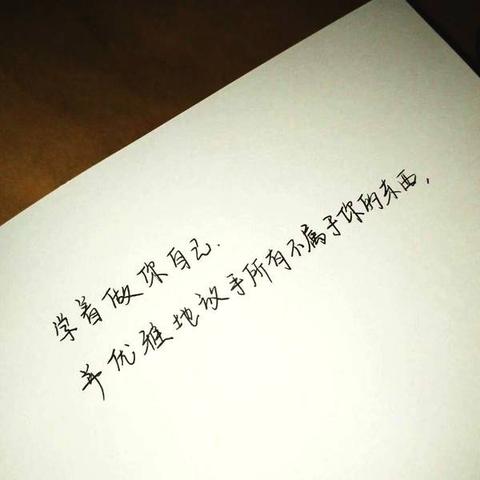 学着做你自己.
并优雅地放手所有不属于你的东西,